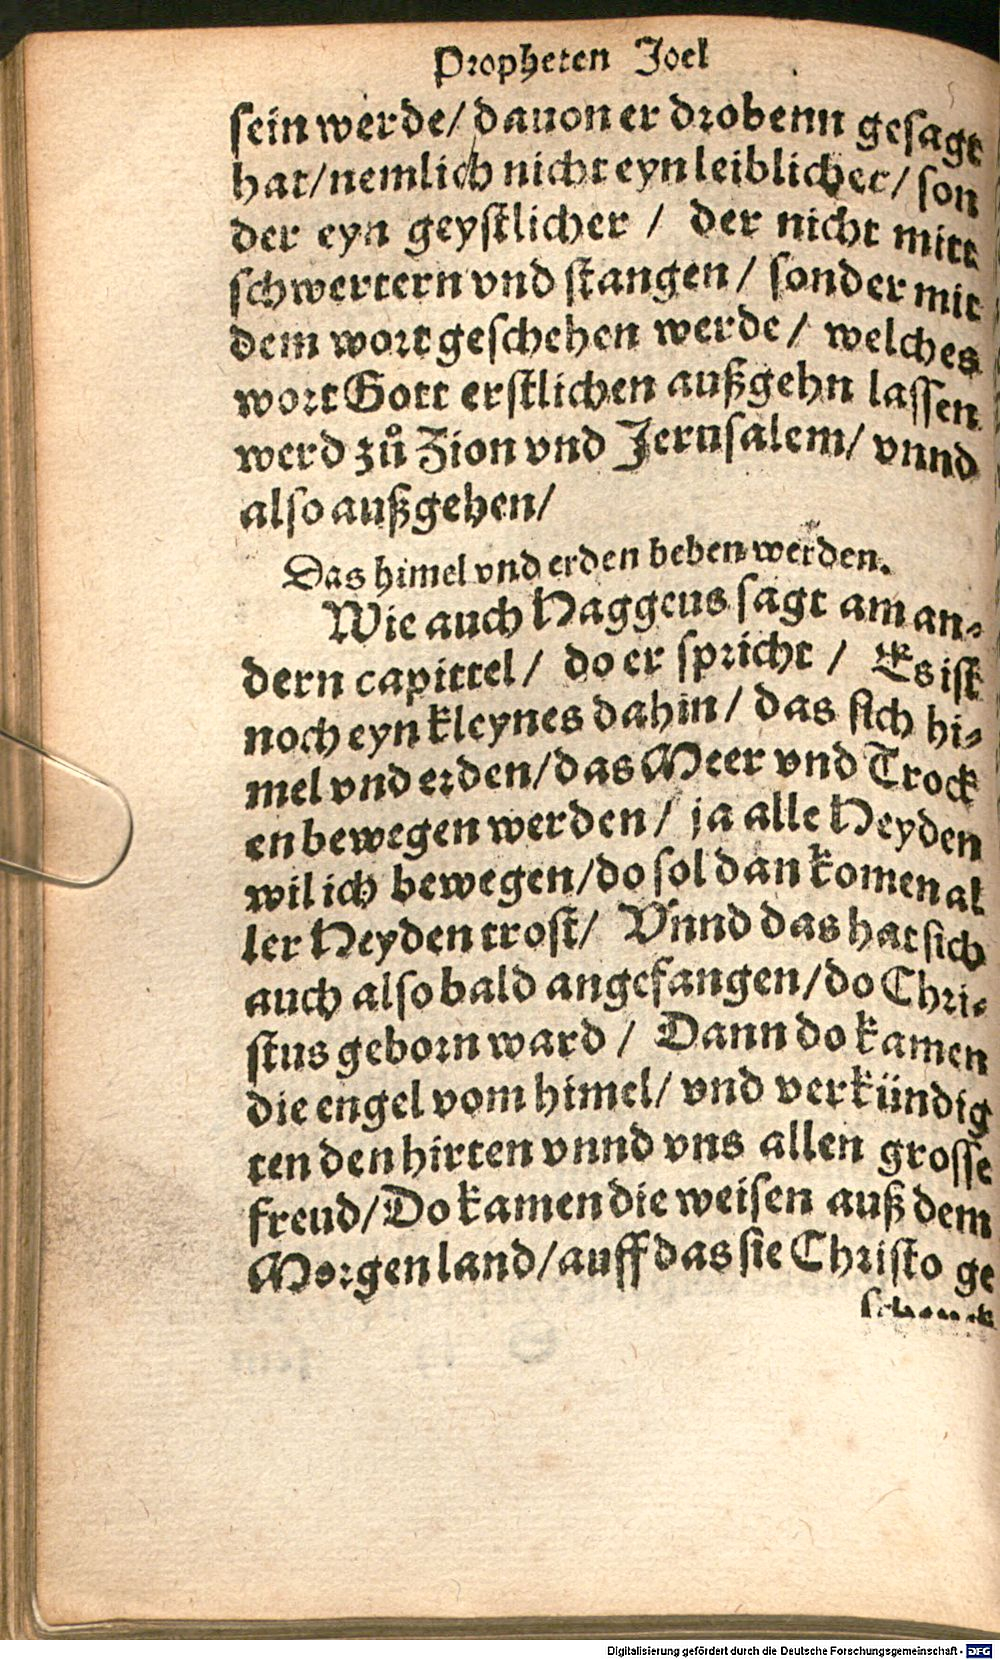 Propheten Joel
sein werde/ dauon er drobenn gesagt
hat/ nemlich nicht eyn leiblicher/ son
der eyn geystlicher / der nicht mitt
schwertern vnd stangen/ sonder mit
dem wort geschehen werde/ welches
wort Gott erstlichen außgehn lassen
werd zů Zion vnd Jerusalem/ vnnd
also außgehen/
Das himel vnd erden beben werden.
Wie auch Haggeus sagt am an-
dern capittel/ do er spricht / Es ist
noch eyn kleynes dahin/ das sich hi-
mel vnd erden/ das Meer vnd Trock
en bewegen werden/ ja alle Heyden
wil ich bewegen/ do sol dan komen al
ler Heyden trost/ Vnnd das hat sich
auch also bald angefangen/ do Chri-
stus geborn ward / Dann do kamen
die engel vom himel/ vnd verkündig
ten den hirten vnnd vns allen grosse
freud/ Do kamen die weisen auß dem
Morgenland/ auff das sie Christo ge
schenck
Digitalisierung gefördert durch die Deutsche Forschungsgemeinschaft - DFG